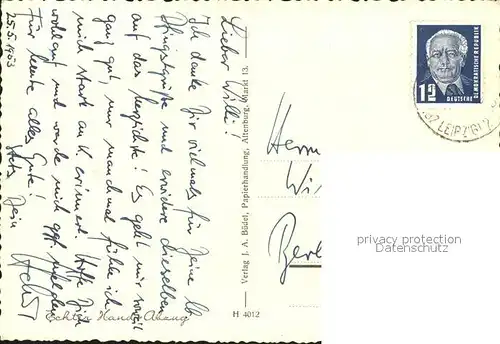 25.5.1953
Lieber Willi!
Ich danke Dir vielmals für Deine lb
Pfingstgrüße und erwidere dieselben
auf das herzlichste! Es geht mir soweit
ganz gut, nur manchmal fühle ich
mich stark an K. erinnert. Hoffe Dich
wohlauf und werde mich ggf. melden
Für heute alles Gute!
Stets Dein
Echter Handabzug
Verlag J. A. Bödel, Papierhandlung, Altenburg, Markt 13.
H 4012
Herrn
Wi
Berl
DEUTSCHE DEMOKRATISCHE REPUBLIK
1 DM
LEIPZIG
privacy protection
Datenschutz